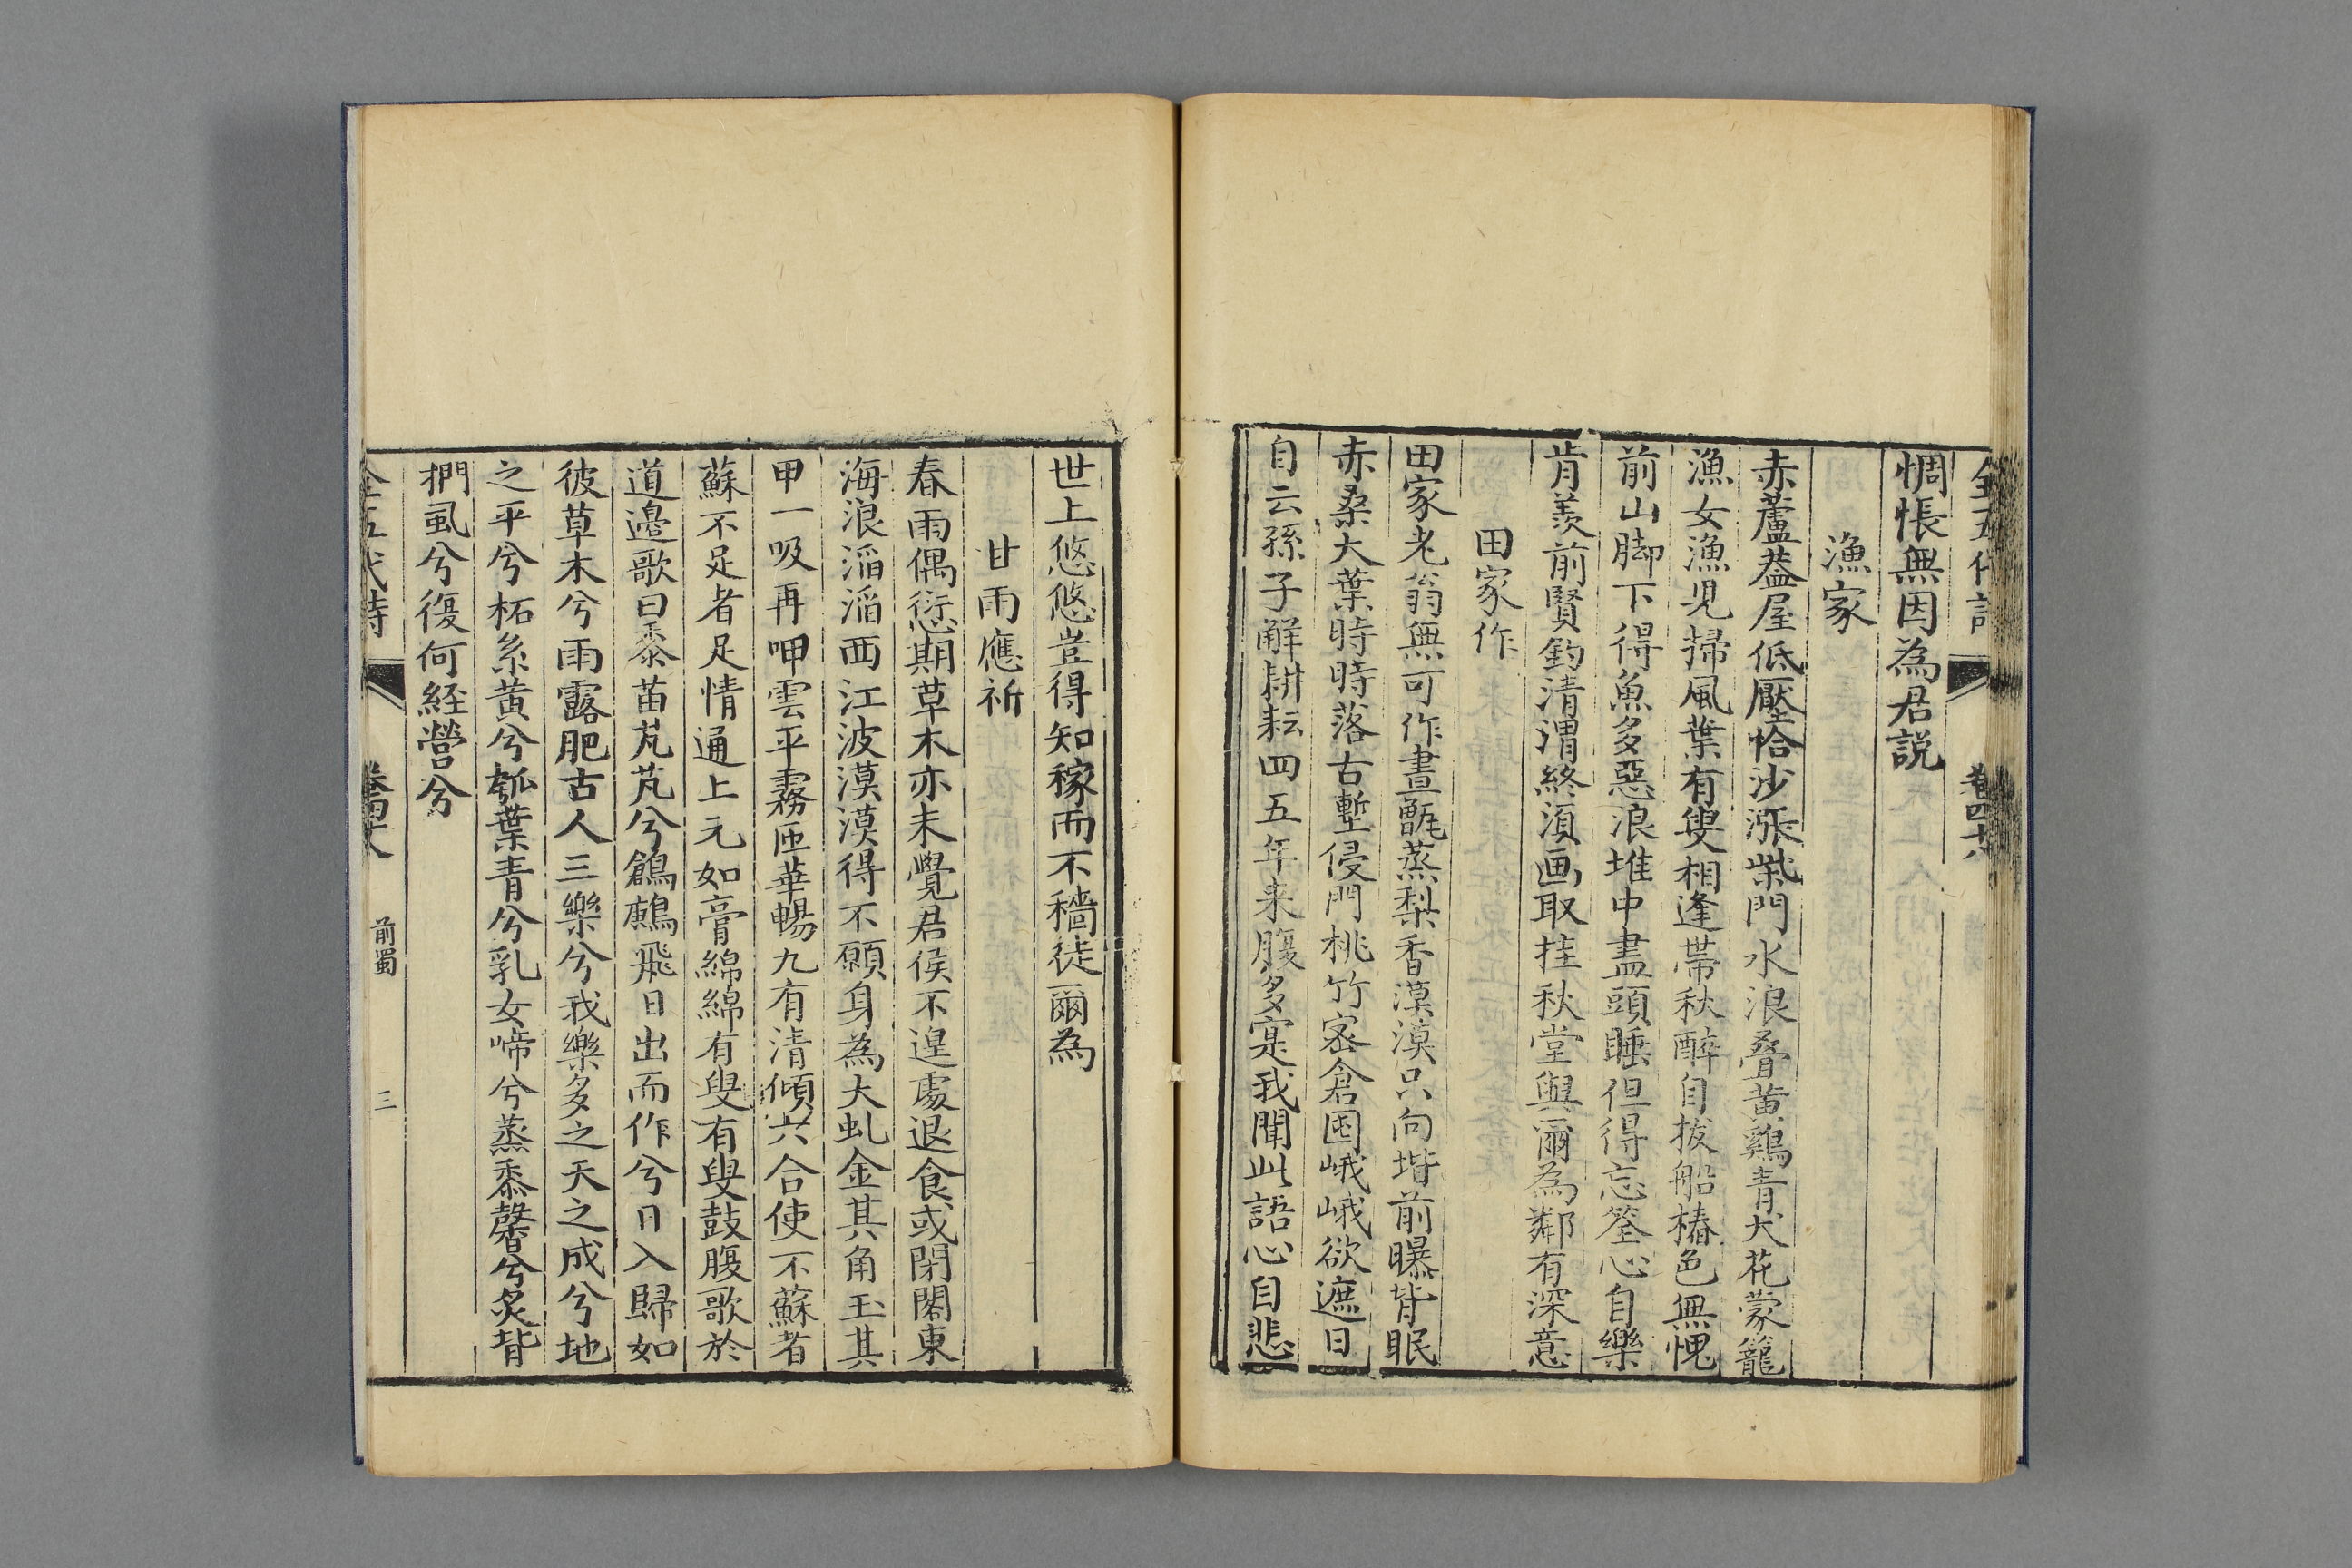 全五代詩 卷四十八
惆悵無因為君説
漁家
赤蘆葢屋低壓恰沙漲柴門水浪疊黄鷄青犬花蒙籠
漁女漁児掃風葉有叟相逢帯秋醉自拔船樁色無愧
前山脚下得魚多惡浪堆中盡頭睡但得忘筌心自樂
肯羨前賢釣清渭終湏画取挂秋堂與爾為鄰有深意
田家作
田家老翁無可作晝甑蒸梨香漠漠只向堦前曝背眠
赤桑大葉時時落古塹侵門桃竹宻倉囷峨峨欲遮日
自云孫子解耕耘四五年来腹多寔我聞此語心自悲
世上悠悠豈得知稼而不穡徒爾為
甘雨應祈
春雨偶愆期草木亦未覺君侯不遑處退食或閉閤東
海浪滔滔西江波漠漠得不願身為大虬金其角玉其
甲一吸再呷雲平霧匝華暢九有清傾六合使不蘇者
蘇不足者足情通上元如膏綿綿有叟有叟鼓腹歌於
道邉歌曰黍苗芃芃兮鶬鷓飛日出而作兮日入歸如
彼草木兮雨露肥古人三樂兮我樂多之天之成兮地
之平兮柘系黄兮瓠葉青兮乳女啼兮蒸黍馨兮炙背
捫虱兮復何経營兮
全五代詩 卷四十八 前蜀 三